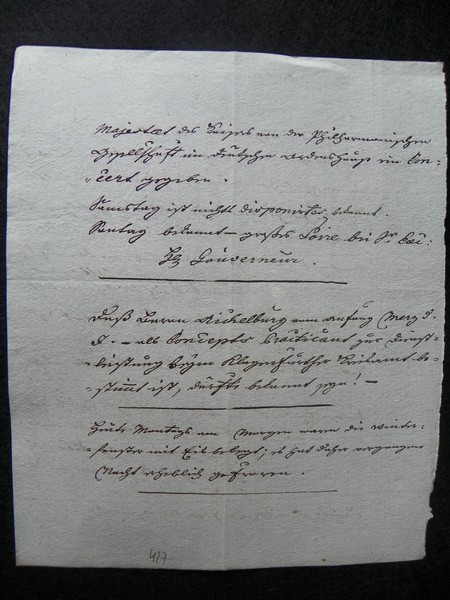 Majestaet des Kaisers von der Philharmonischen
Gesellschaft im deutschen Ordenshause ein Con-
-cert gegeben.
Samstag ist nichts disponirter bekannt.
Sontag bekannt – großes Soire bei Sr. Exc:
H. Gouverneur.
Daß Baron Aichelburg vom Anfang Merz d.
J. – als Concepts Practicant zur Dienst-
-leistung beym Klagenfurther Kreisamt be-
-stimt ist, dürfte bekannt seyn! –
Heute Montags am Morgen waren die Winter-
-fenster mit Eis belegt; es hat daher vergangene
Nacht erheblich gefroren.
477